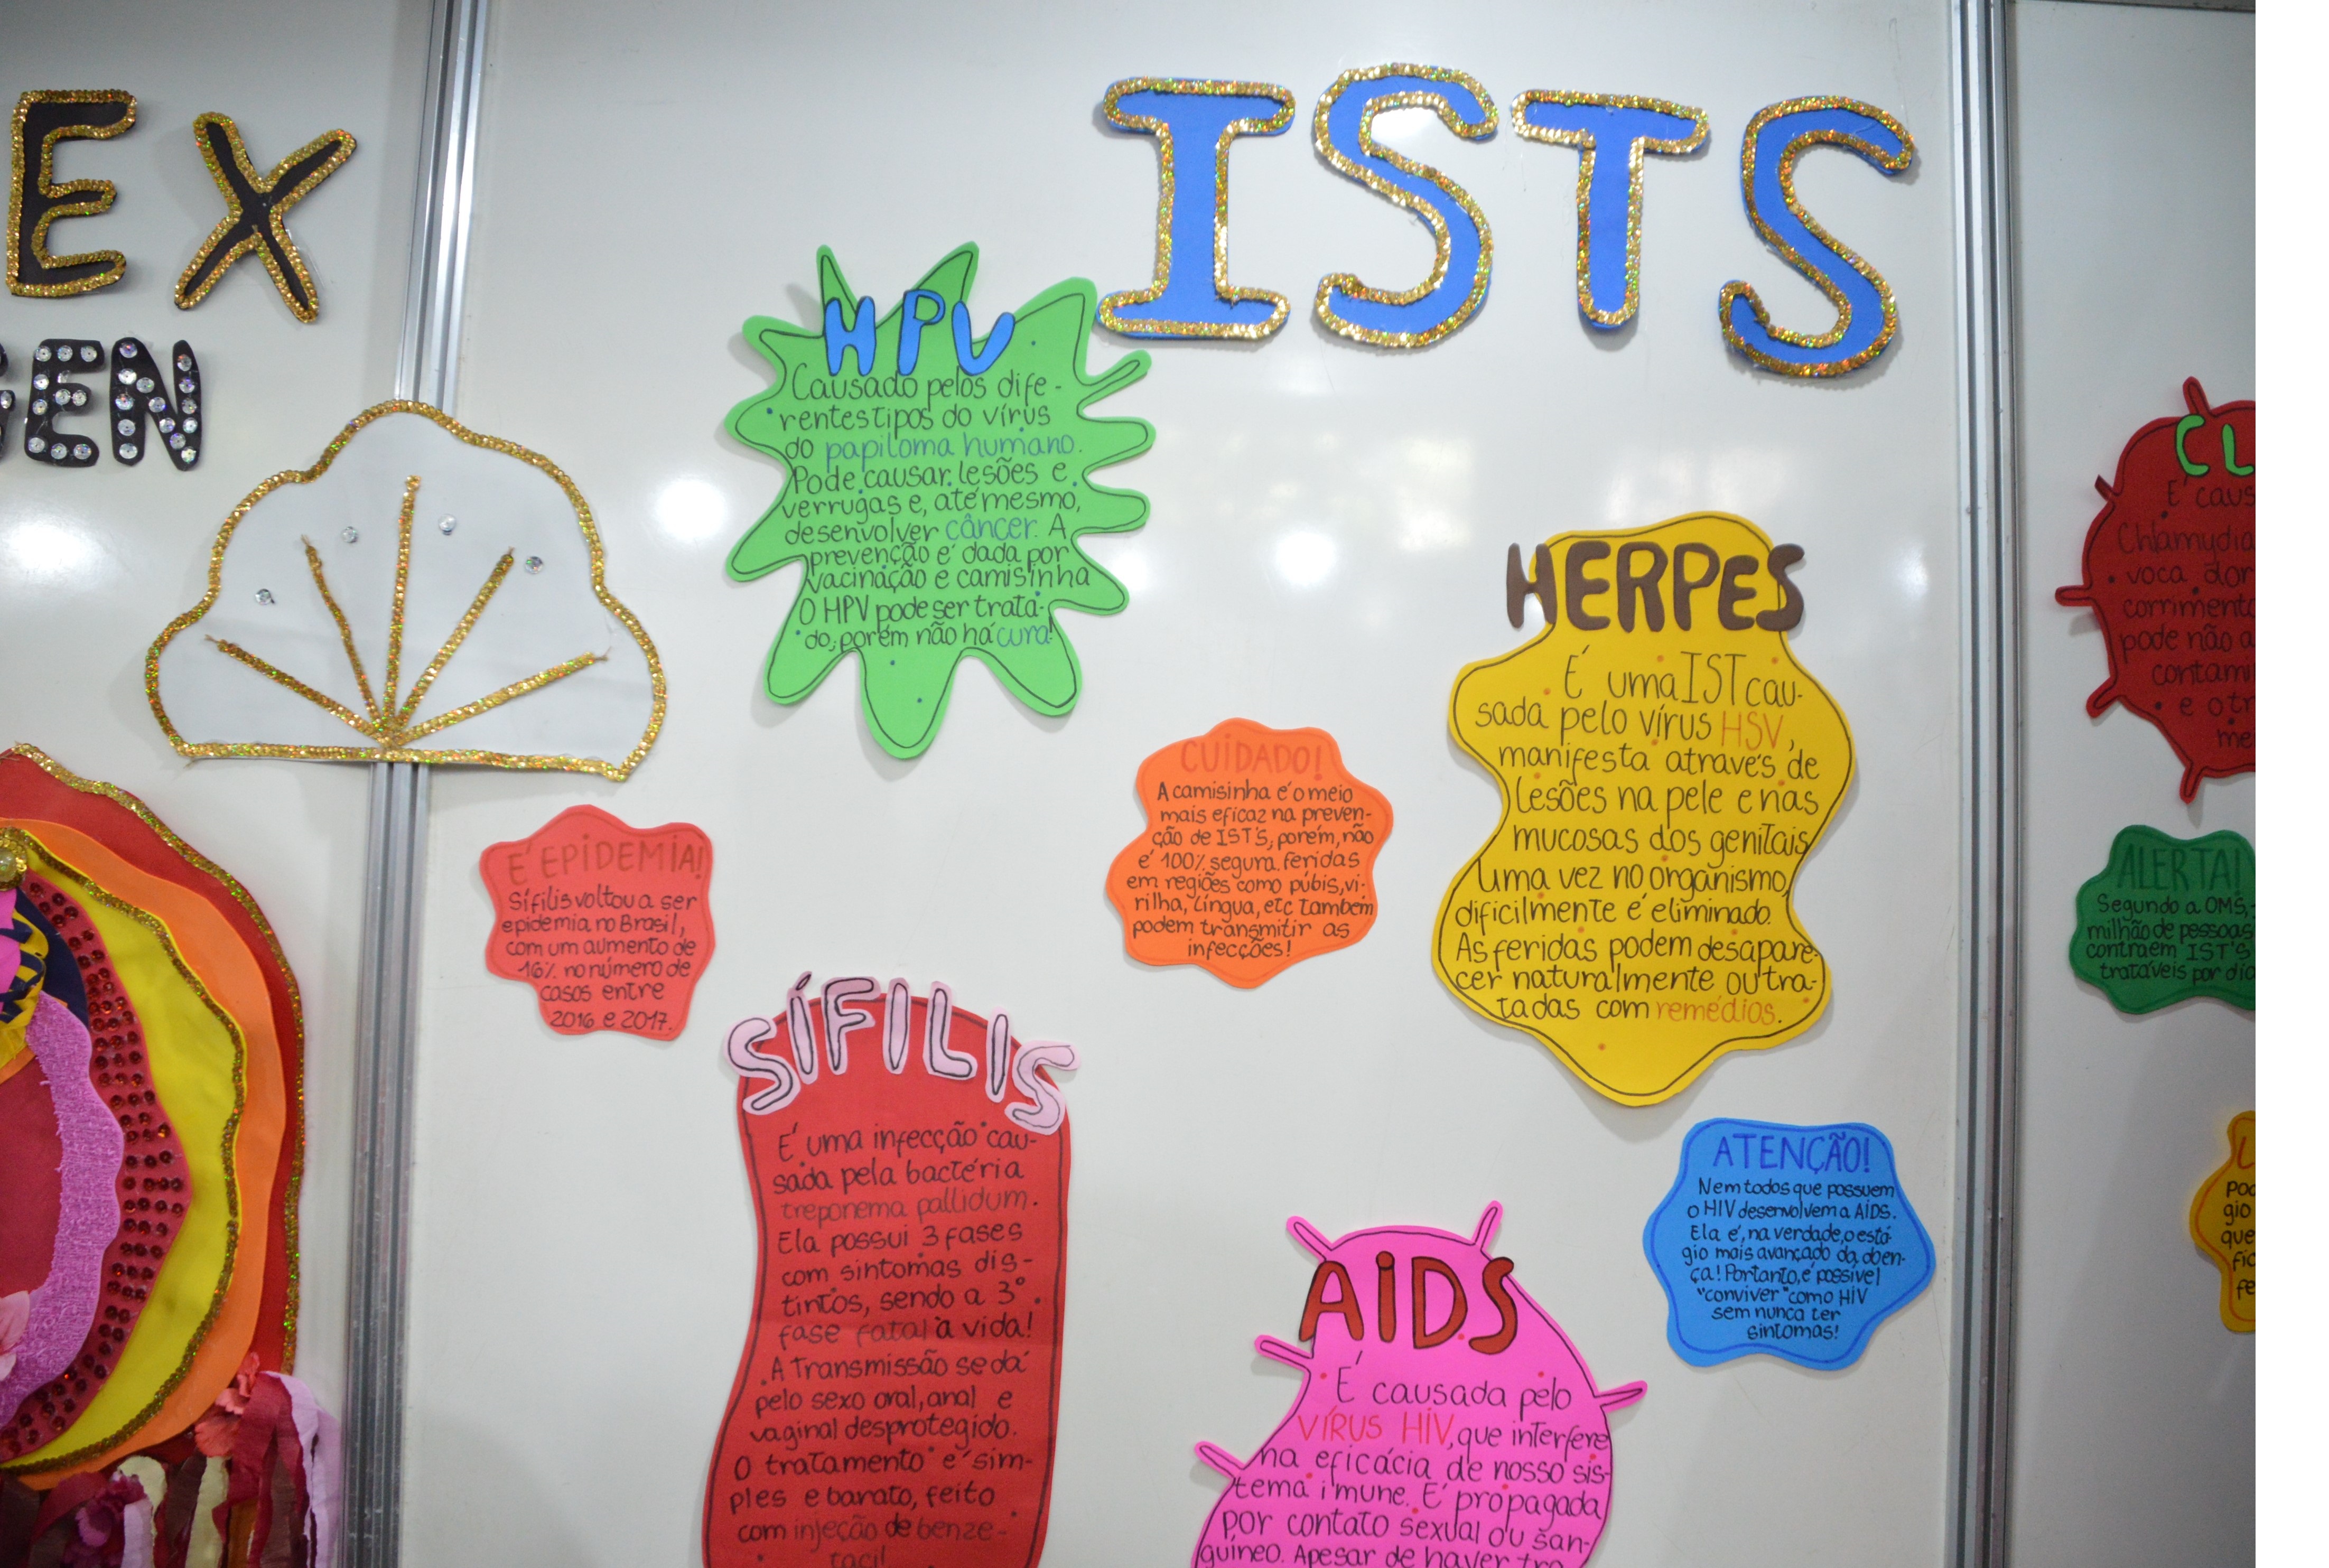 EX
GEN
ISTS
HPV
Causado pelos dife-
rentes tipos do vírus
do papiloma humano.
Pode causar lesões e
verrugas e, até mesmo,
desenvolver câncer. A
prevenção é dada por
vacinação e camisinha
O HPV pode ser trata-
do, porém não há cura!
HERPES
É uma IST cau-
sada pelo vírus HSV,
manifesta através de
lesões na pele e nas
mucosas dos genitais
Uma vez no organismo,
dificilmente é eliminado.
As feridas podem desapare-
cer naturalmente ou tra-
tadas com remédios.
CUIDADO!
A camisinha é o meio
mais eficaz na preven-
ção de IST'S, porém, não
é 100% segura. feridas
em regiões como púbis, vi-
rilha, língua, etc também
podem transmitir as
infecções!
É EPIDEMIA!
Sífilis voltou a ser
epidemia no Brasil,
com um aumento de
16% no número de
casos entre
2016 e 2017.
SÍFILIS
É uma infecção cau-
sada pela bactéria
treponema pallidum.
Ela possui 3 fases
com sintomas dis-
tintos, sendo a 3°
fase fatal à vida!
A transmissão se dá
pelo sexo oral, anal e
vaginal desprotegido.
O tratamento é sim-
ples e barato, feito
com injeção de benze-
tacil
ATENÇÃO!
Nem todos que possuem
o HIV desenvolvem a AIDS.
Ela é, na verdade, o está-
gio mais avançado da doen-
ça! Portanto, é possível
"conviver" como HIV
sem nunca ter
sintomas!
AIDS
É causada pelo
VÍRUS HIV, que interfere
na eficácia de nosso sis-
tema imune. É propagada
por contato sexual ou san-
guíneo. Apesar de haver tra
CL
É caus
Chlamydia
voca dor
corrimento
pode não a
contami
e o tr
me
ALERTA!
Segundo a OMS,
milhão de pessoas
contraem IST'S
tratáveis por dia
L
pod
gio
que
fic
fe